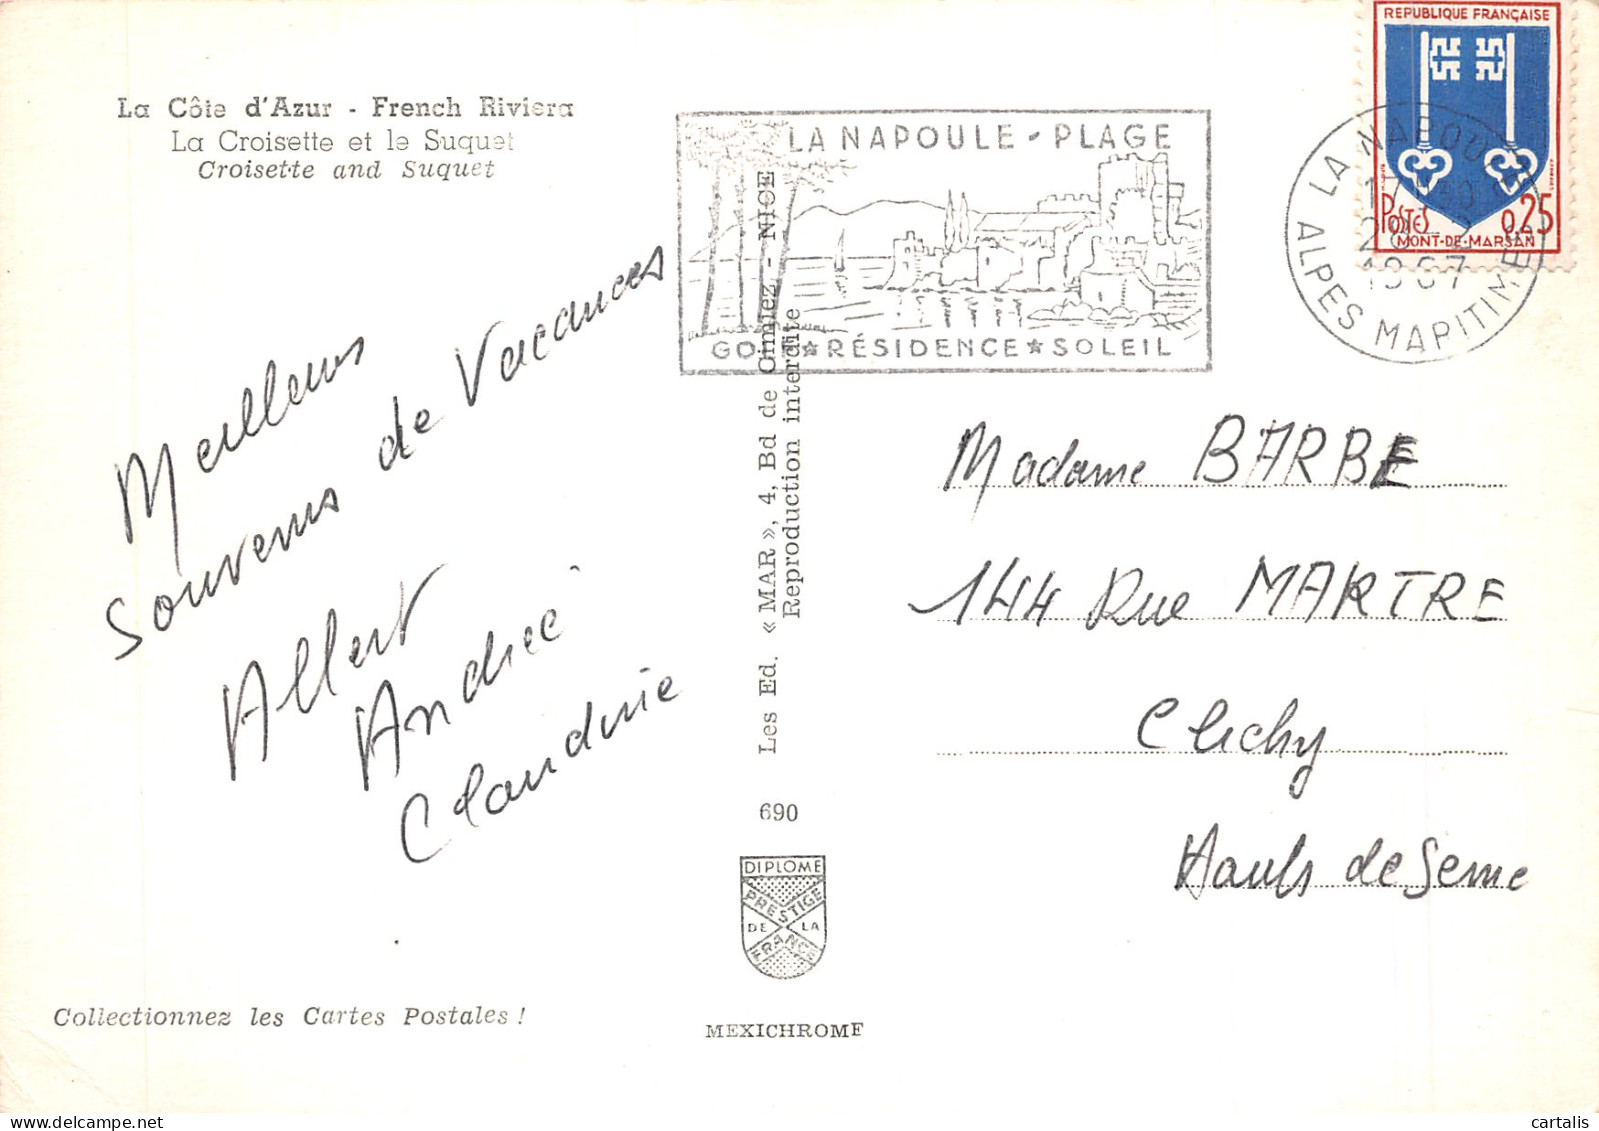 La Côte d'Azur - French Riviera
La Croisette et le Suquet
Croisette and Suquet
LA NAPOULE - PLAGE
GOLF ★ RÉSIDENCE ★ SOLEIL
REPUBLIQUE FRANÇAISE
POSTES 0,25
MONT-DE-MARSAN
LA NAPOULE
17H30
28-2
1967
ALPES MARITIMES
Meilleurs
Souvenirs de Vacances
Albert
Andrée
Claudine
Les Ed. « MAR », 4, Bd de Cimiez - NICE
Reproduction interdite
690
DIPLOME
PRESTIGE
DE LA
FRANCE
MEXICHROME
Madame BARBE
144 Rue MARTRE
Clichy
Hauts de Seine
Collectionnez les Cartes Postales !
cartalis